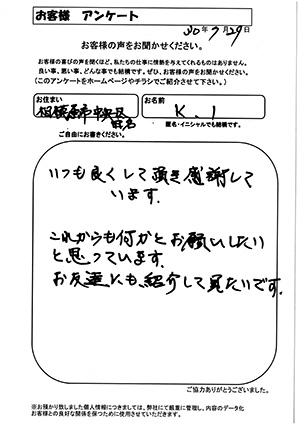 お客様 アンケート
30年7月29日
お客様の声をお聞かせください。
お客様の喜びの声を聞くほど、私たちの仕事に情熱を与えてくれるものはありません。
良い事、悪い事、どんな事でも結構です。ぜひ、お客様の声をお聞かせください。
(このアンケートをホームページやチラシでご紹介させて下さい。)
お住まい
相模原市中央区
お名前
K.I
匿名・イニシャルでも結構です。
ご自由にお書きください。
いつも良くして頂き感謝して
います.
これからも何かとお願いしたい
と思っています.
お友達にも、紹介して見たいです.
ご協力ありがとうございました。
※お預かり致しました個人情報につきましては、弊社にて厳重に管理し、内容のデータ化
お客様との良好な関係を保つために使用させていただきます。